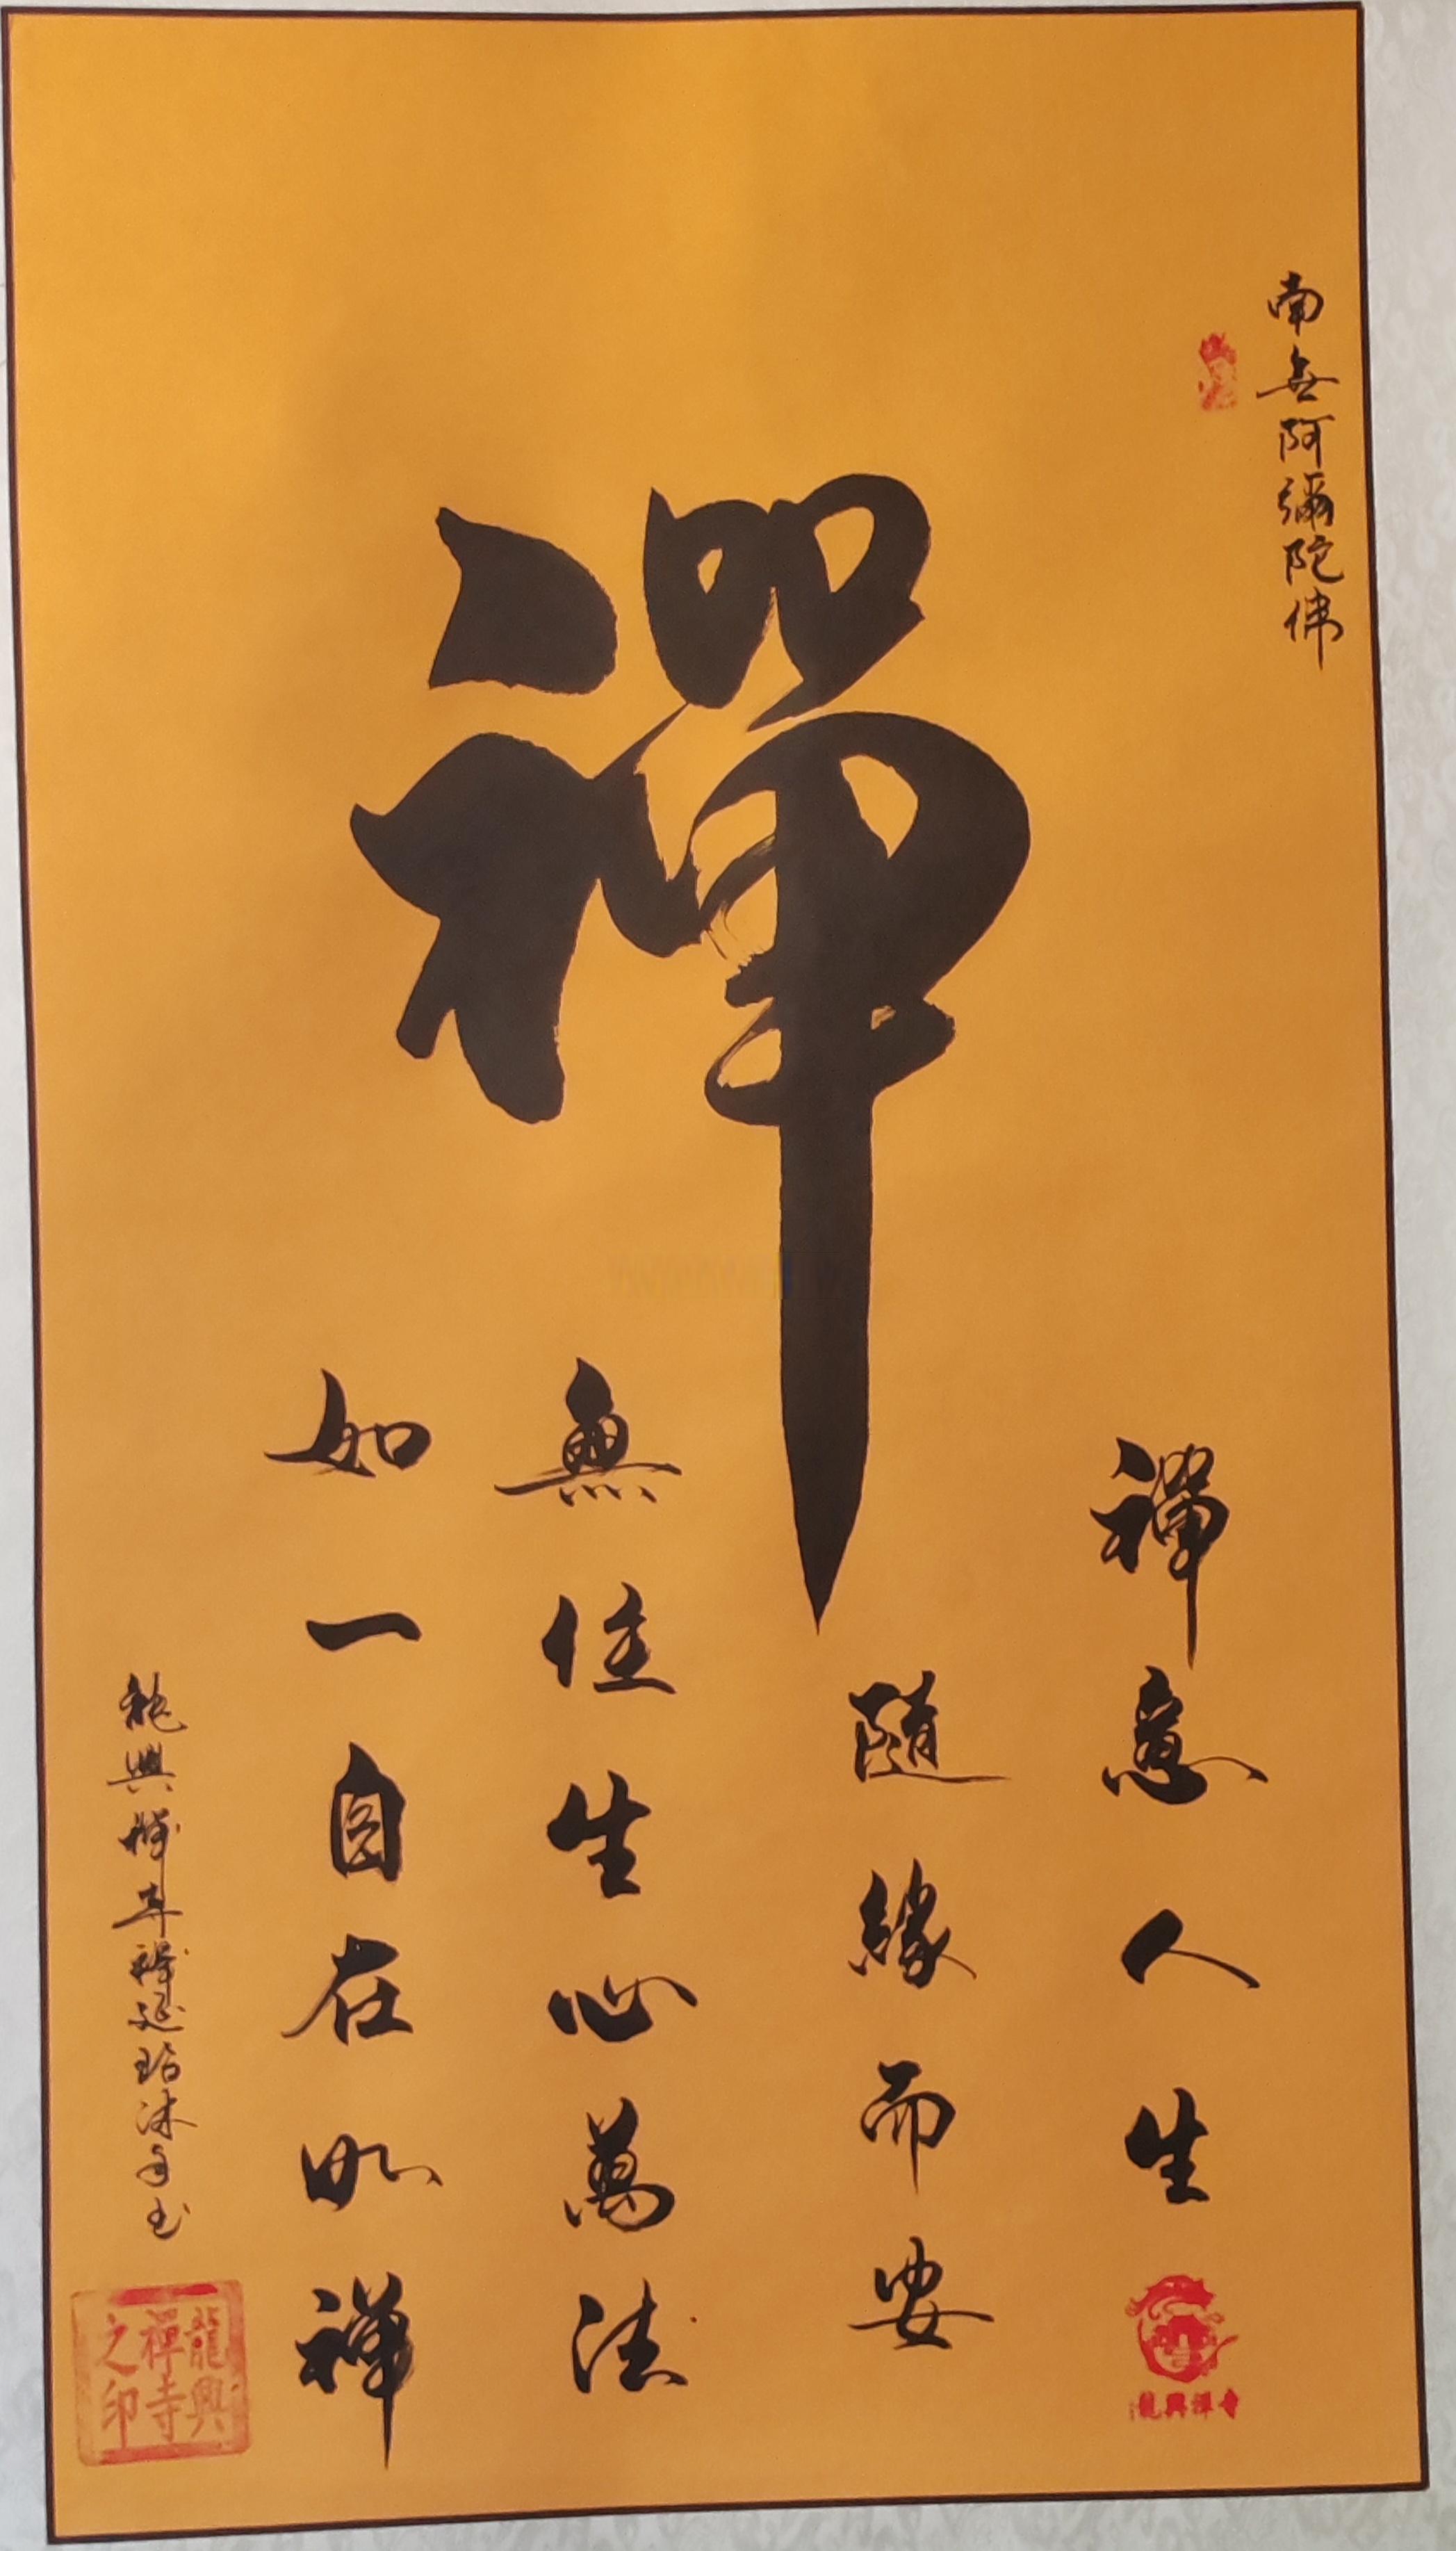 南無阿彌陀佛
禪
禪意人生
龍興禪寺
隨緣而安
無住生心萬法
如一自在如禪
龍興禪寺釋延沐手书
龍興
禪寺
之印